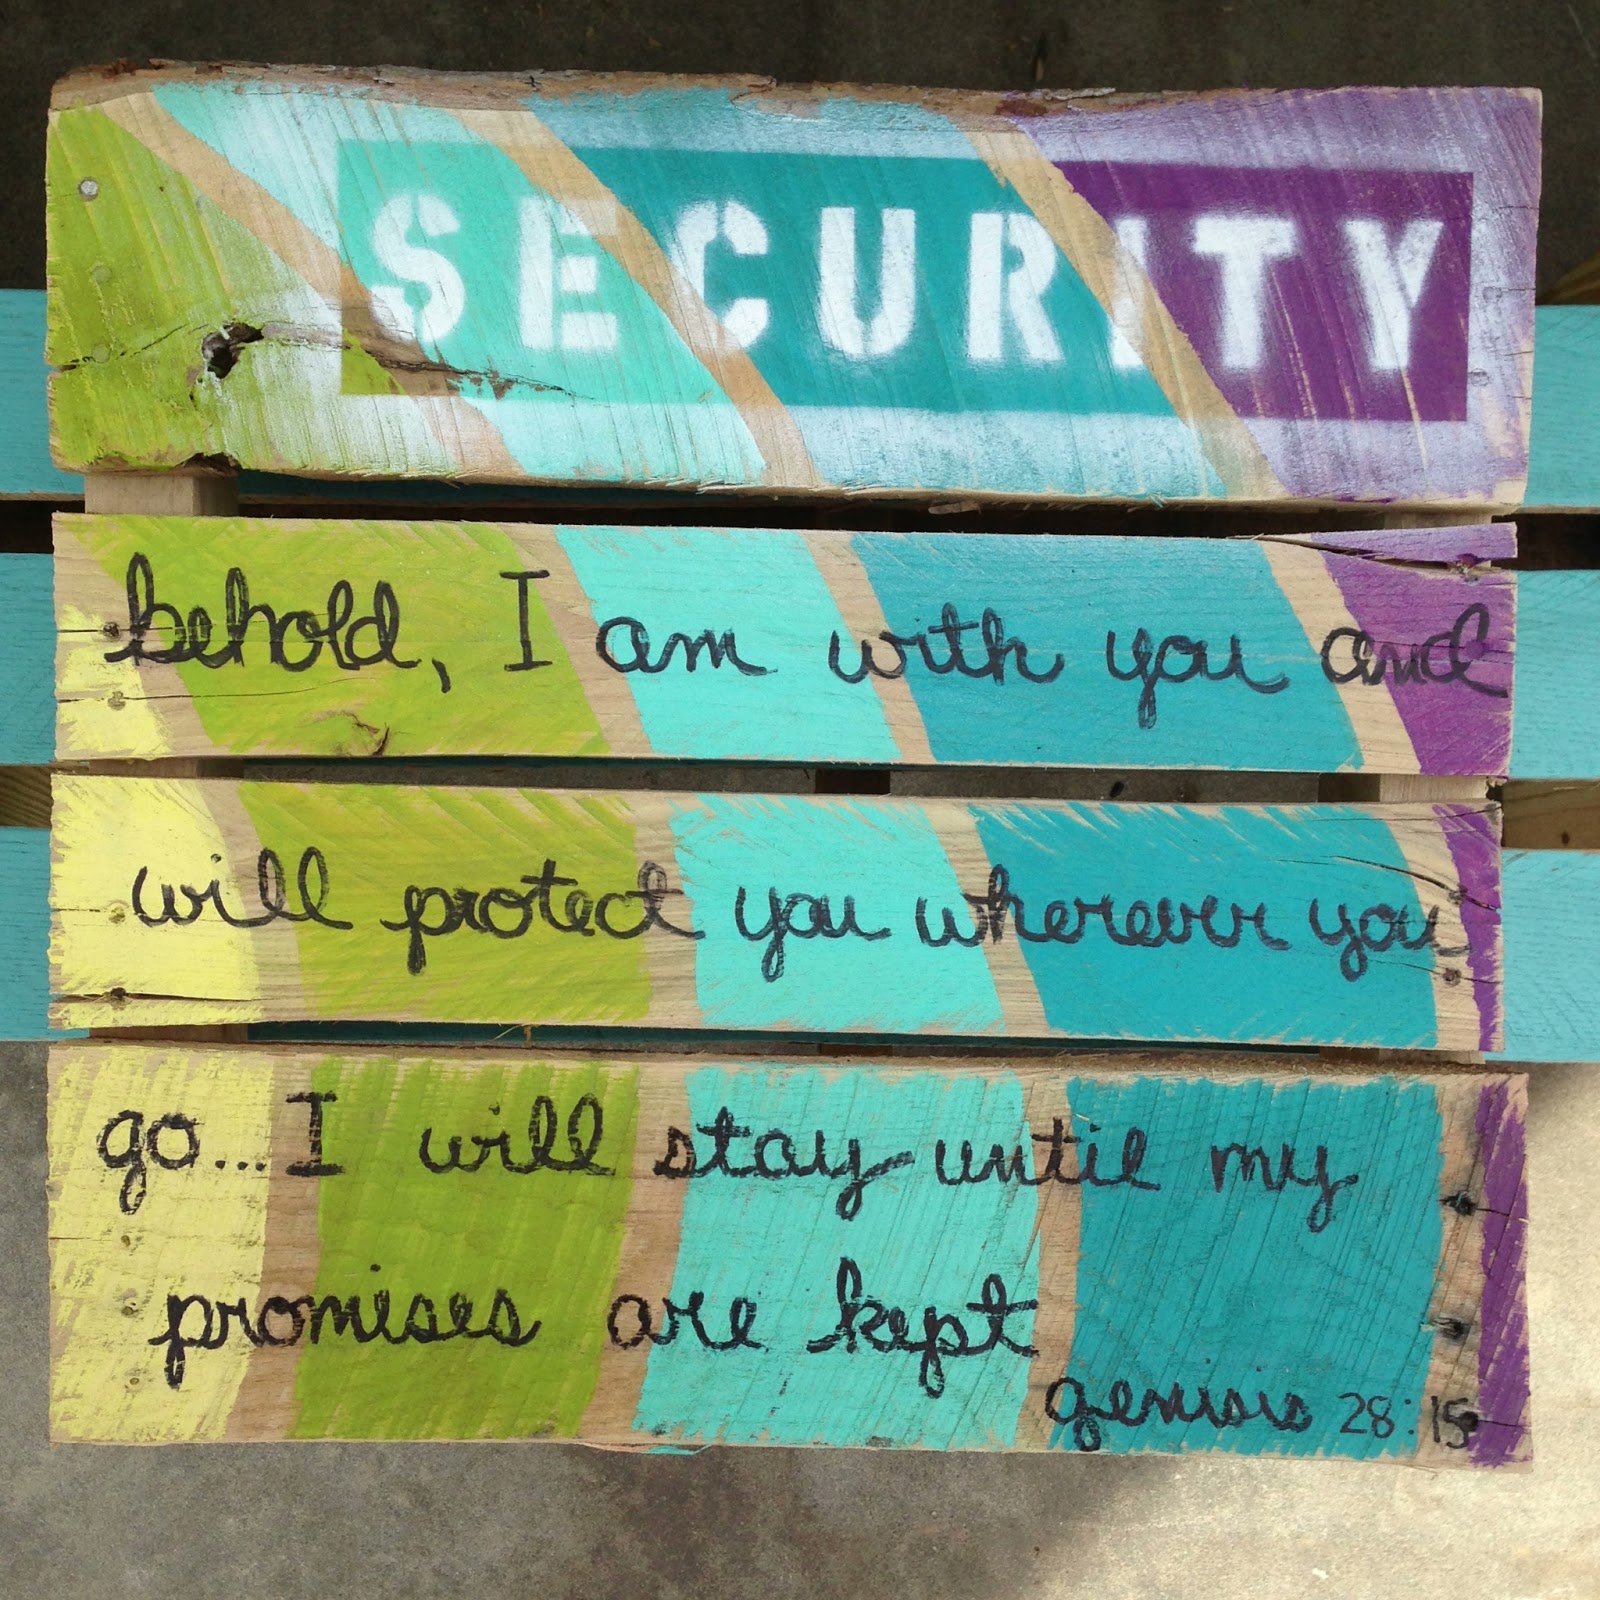 SECURITY
behold, I am with you and
will protect you wherever you
go... I will stay until my
promises are kept
genesis 28:15